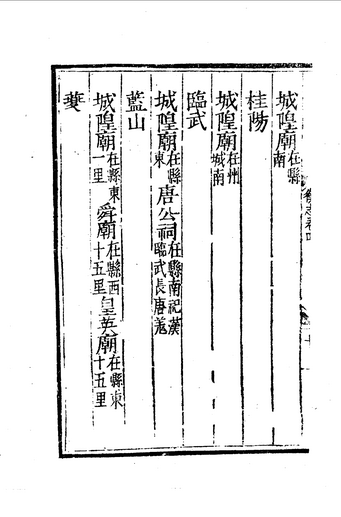 城隍廟在縣南
桂陽
城隍廟在州城南
臨武
城隍廟在縣東 唐公祠在縣南祀漢臨武長唐羌
藍山
城隍廟在縣東一里 舜廟在縣西十五里 皇英廟在縣東十五里